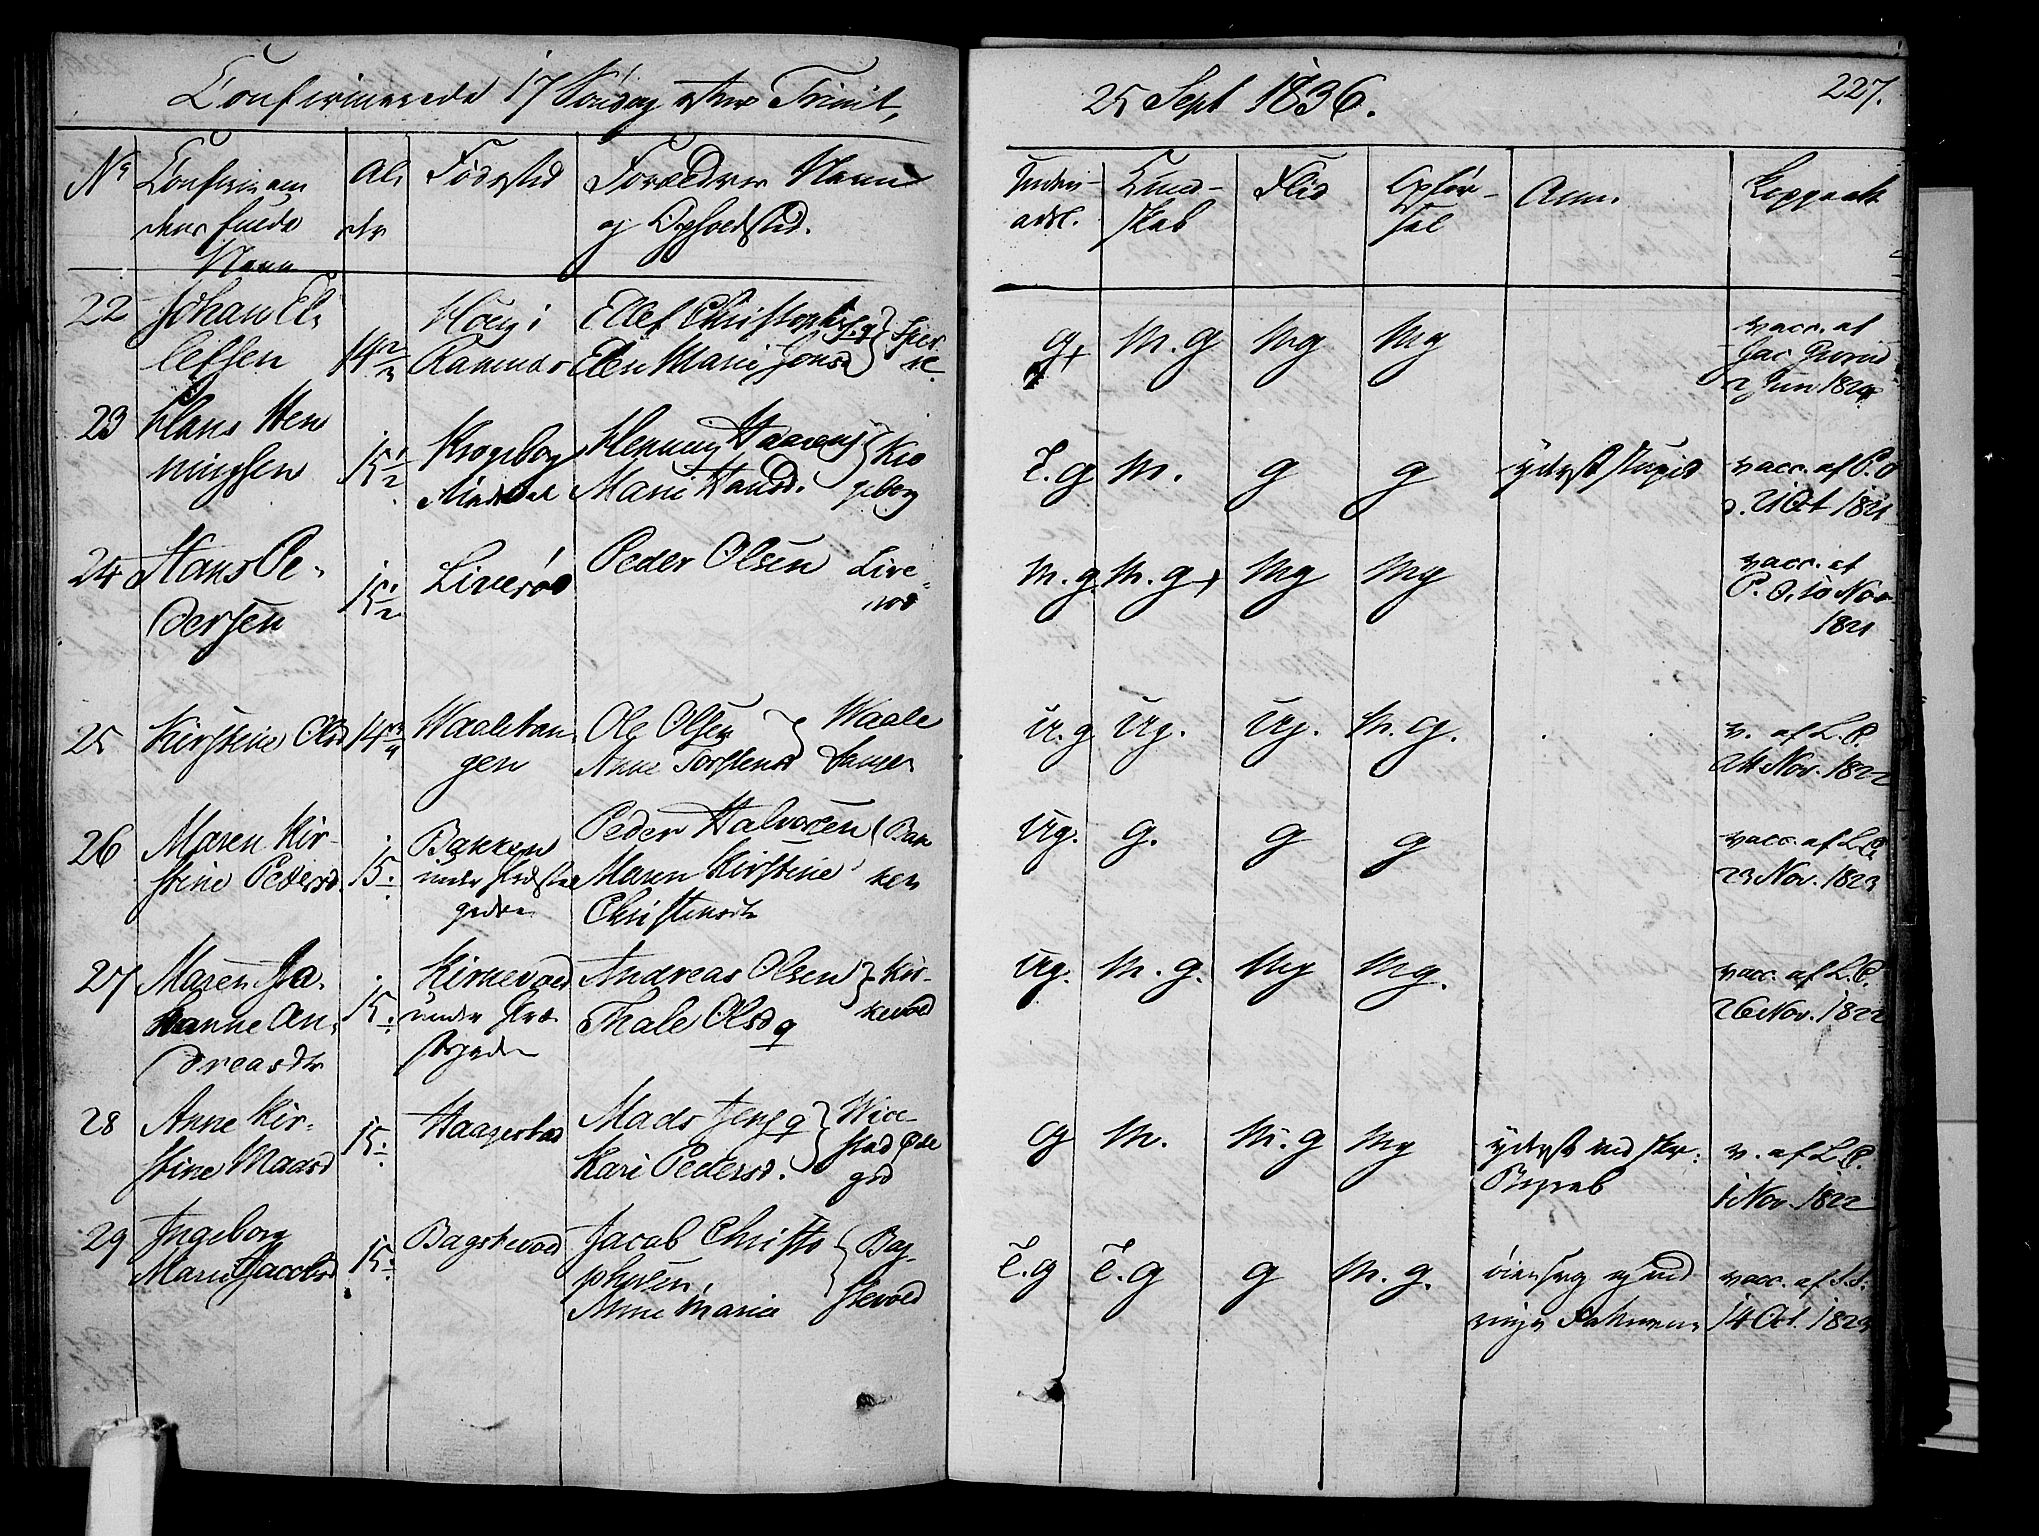 Confirmerede 17 Søndag efter Trinit,
25 Sept 1836.
227.
No Confirman
dens fulde
Navn
Al
der
Fødested
Forældres Navn
og Opholdsted.
Indenadsl.
Kund-
skab
Flid
Opfør-
sel
Anm.
22 Johan El-
lefsen
14 2/3
i
Ellef Christophers. g
Elen Marie Jensd
g+ M.g Mg Mg
vacc. af
2 Jun 1824
23 Hans Hen
ningsen
15 1/2
Krogeborg
Henning
Marie Hansd.
Kro
geborg
T.g M. g g yderst stupid
vacc. af P.O
d. 21 Oct 1821
24 Hans Pe-
dersen
15 1/2
Liverød
Peder Olsen
Live-
rød
M.g M.g+ Mg Mg
vacc. af
P.O. 10 Nov
1821
25 Kirstine Olsd
14 3/4
Waaletan
gen
Ole Olsen
Anne Torstensd
Waale
tangen
Ug. Ug. Ug. M.g.
v. af L.P.
24 Nov. 1822
26 Maren Kir-
stine Pedersd.
15
Bakken
under
Peder Halvorsen
Maren Kirstine
Christensdtr
Bak
ken
Ug. g. g g
vacc. af L.P.
23 Nov. 1823
27 Maren Jo
hanne An-
dreasdtr
15
Kirkevold
under
Andreas Olsen
Thale Olsd
Kir-
kevold
Ug. M.g. Mg Mg.
vacc. af L.P.
26 Nov. 1822
28 Anne Kir-
stine Madsd
15
Haagestad
Mads
Kari Pedersd.
g M. M.g Mg
v. af L.P.
1 Nov. 1822
29 Ingeborg
Marie Jacobsd
15
Bagstevold
Jacob Christo
phersen,
Anne Maria
Bag
stevold
T.g T.g g M.g.
vacc. af
14 Oct. 1823